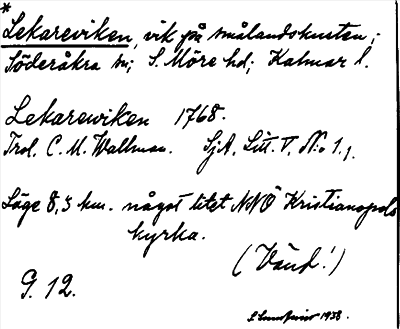 *
Lekareviken, vik på smålandskusten;
Söderåkra sn; S. Möre hd; Kalmar l.
Lekarewiken 1768.
Trol. C. M. Wallman. SjA, Litt. V, No 1.
Läge 8,5 km. något litet NNO Kristianopels
kyrka.
(Vänd!)
G. 12.
1938.